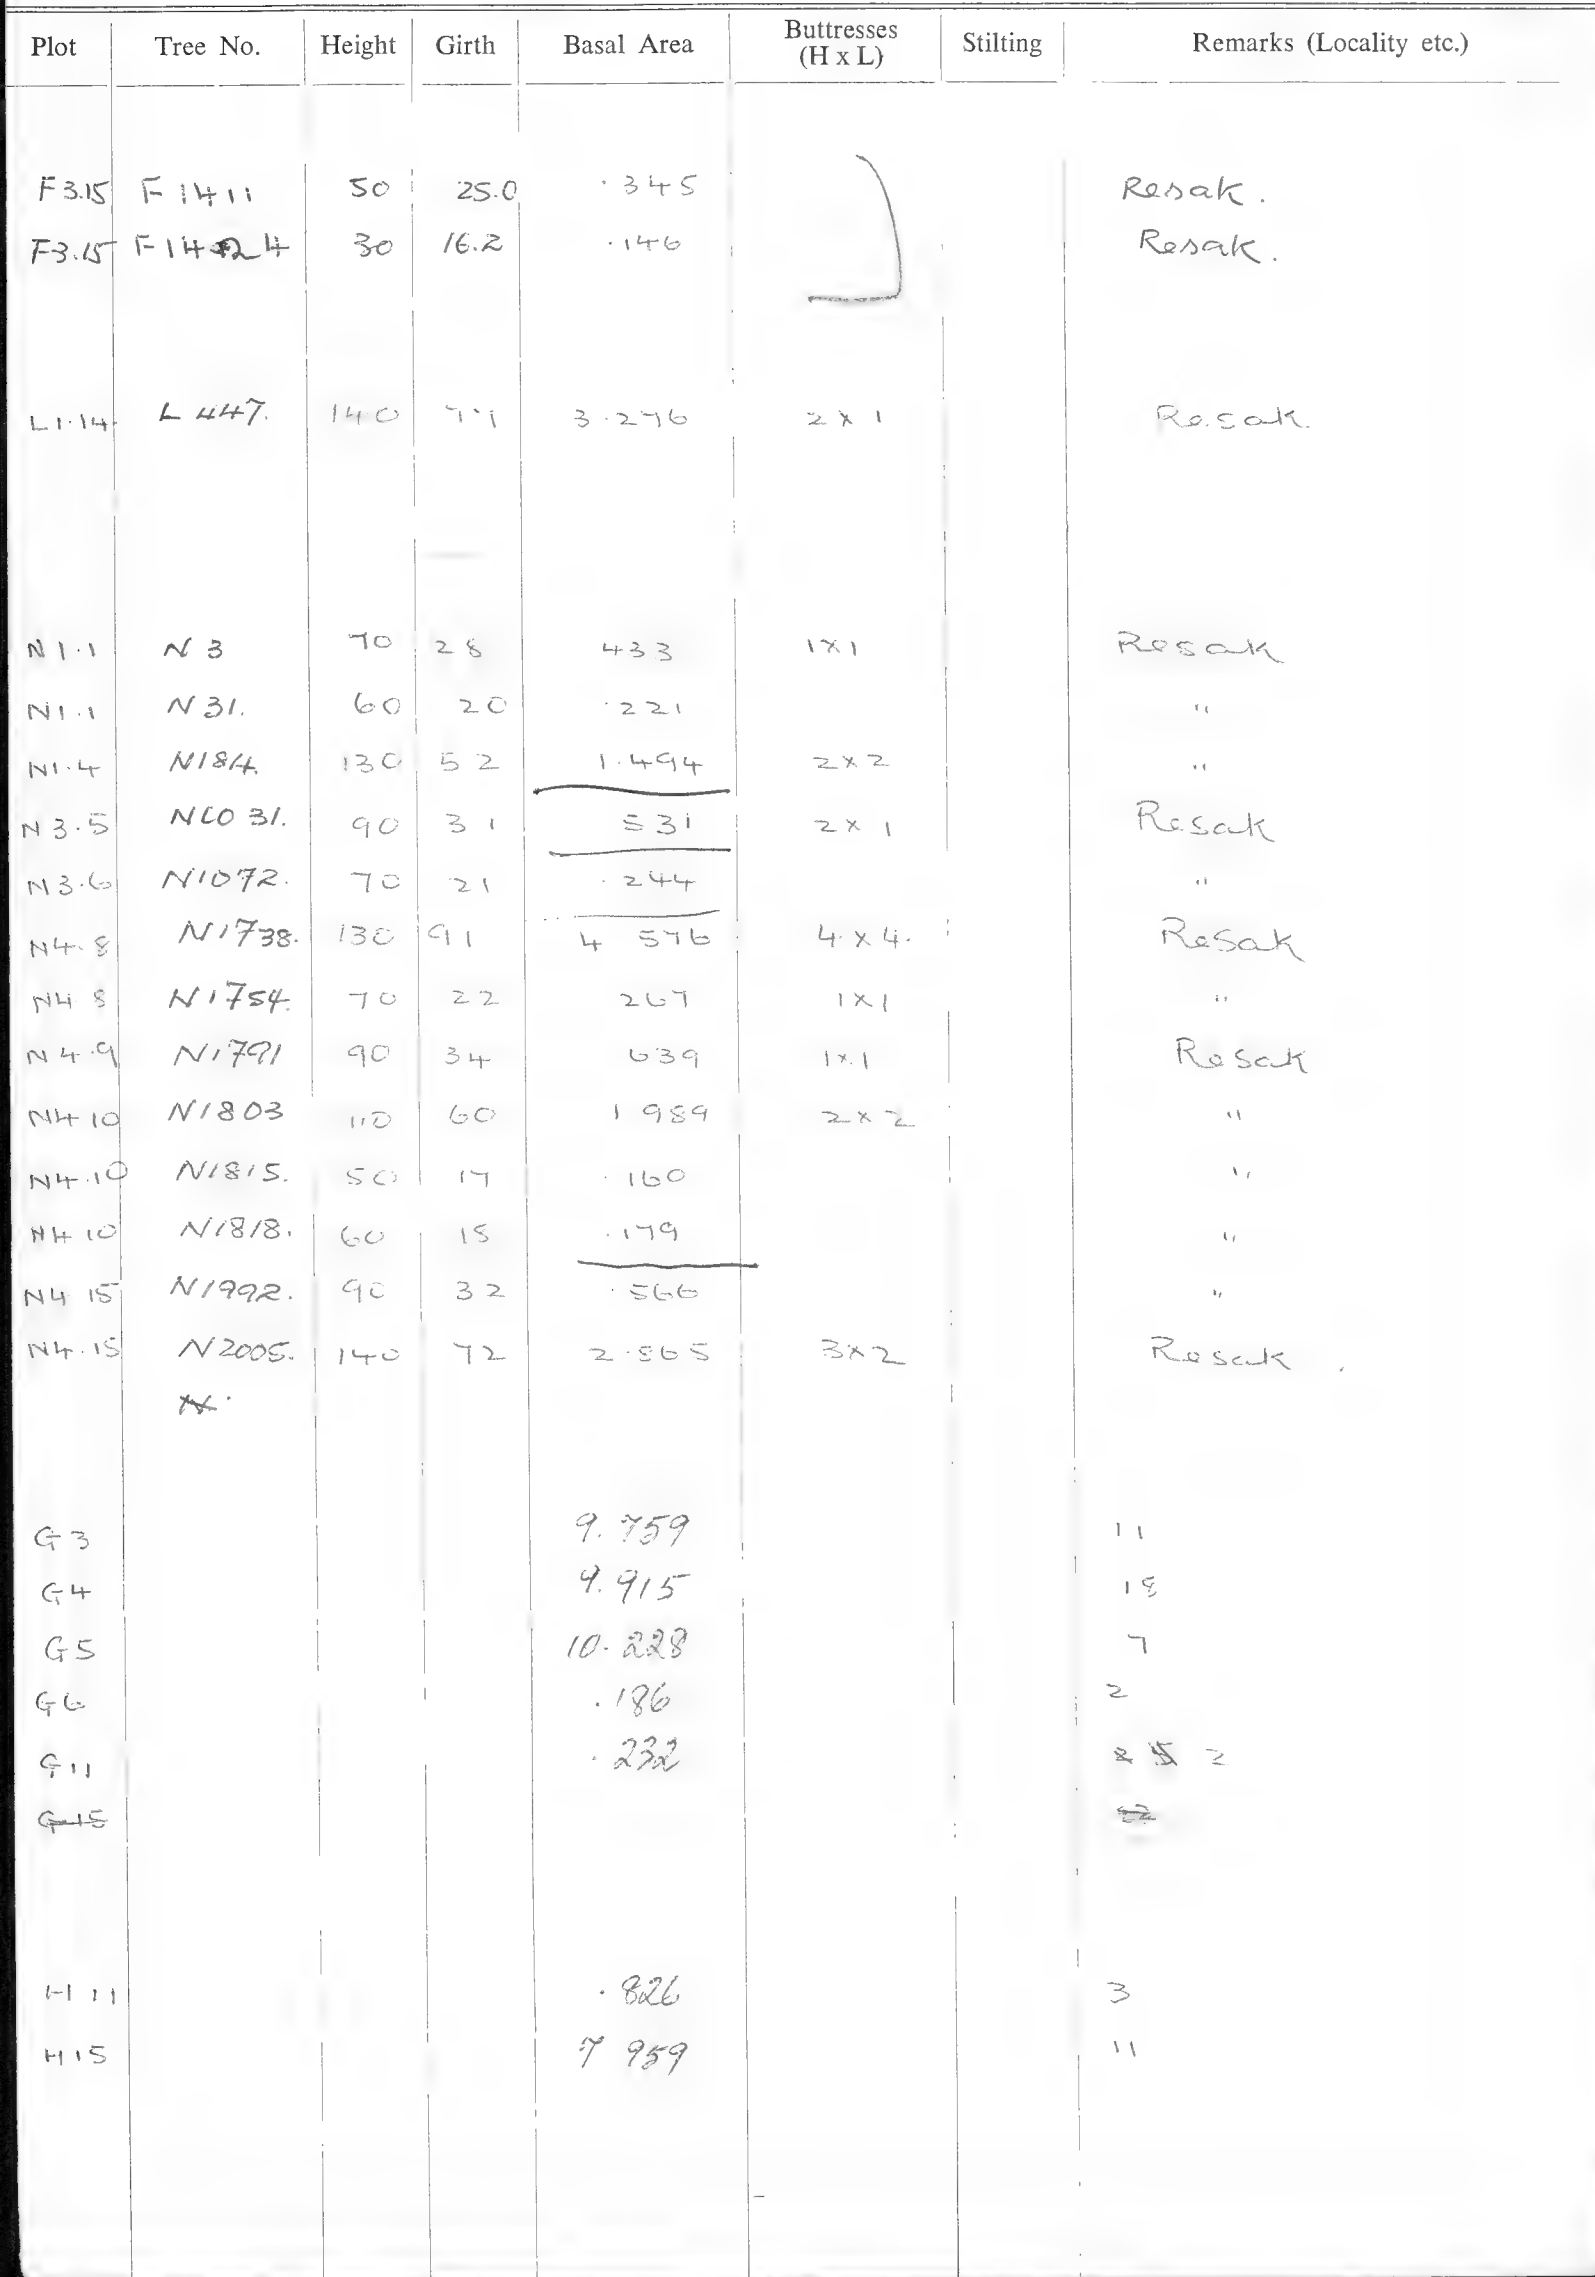 Plot Tree No. Height Girth Basal Area Buttresses (H x L) Stilting Remarks (Locality etc.)
F3.15 F1411 50 25.0 .345 Resak.
F3.15 F1424 30 16.2 .146 Resak.
L1.14 L447. 140 77 3.276 2 x 1 Resak.
N1.1 N3 70 28 433 1x1 Resak
N1.1 N31. 60 20 .221 "
N1.4 N184. 130 52 1.494 2x2 "
N3.5 N1031. 90 31 531 2x1 Resak
N3.6 N1072. 70 21 .244 "
N4.8 N1738. 130 91 4 576 4 x 4. Resak
N4 8 N1754. 70 22 267 1x1 "
N4.9 N1791 90 34 639 1x1 Resak
N4 10 N1803 110 60 1 989 2x2 "
N4.10 N1815. 50 17 .160 "
N4 10 N1818. 60 18 .179 "
N4 15 N1992. 90 32 .566 "
N4.15 N2005. 140 72 2.865 3x2 Resak.
G3 9.759 11
G4 9.915 18
G5 10.228 7
G6 .186 2
G11 .232 2
G15
H11 .826 3
H15 7 959 11